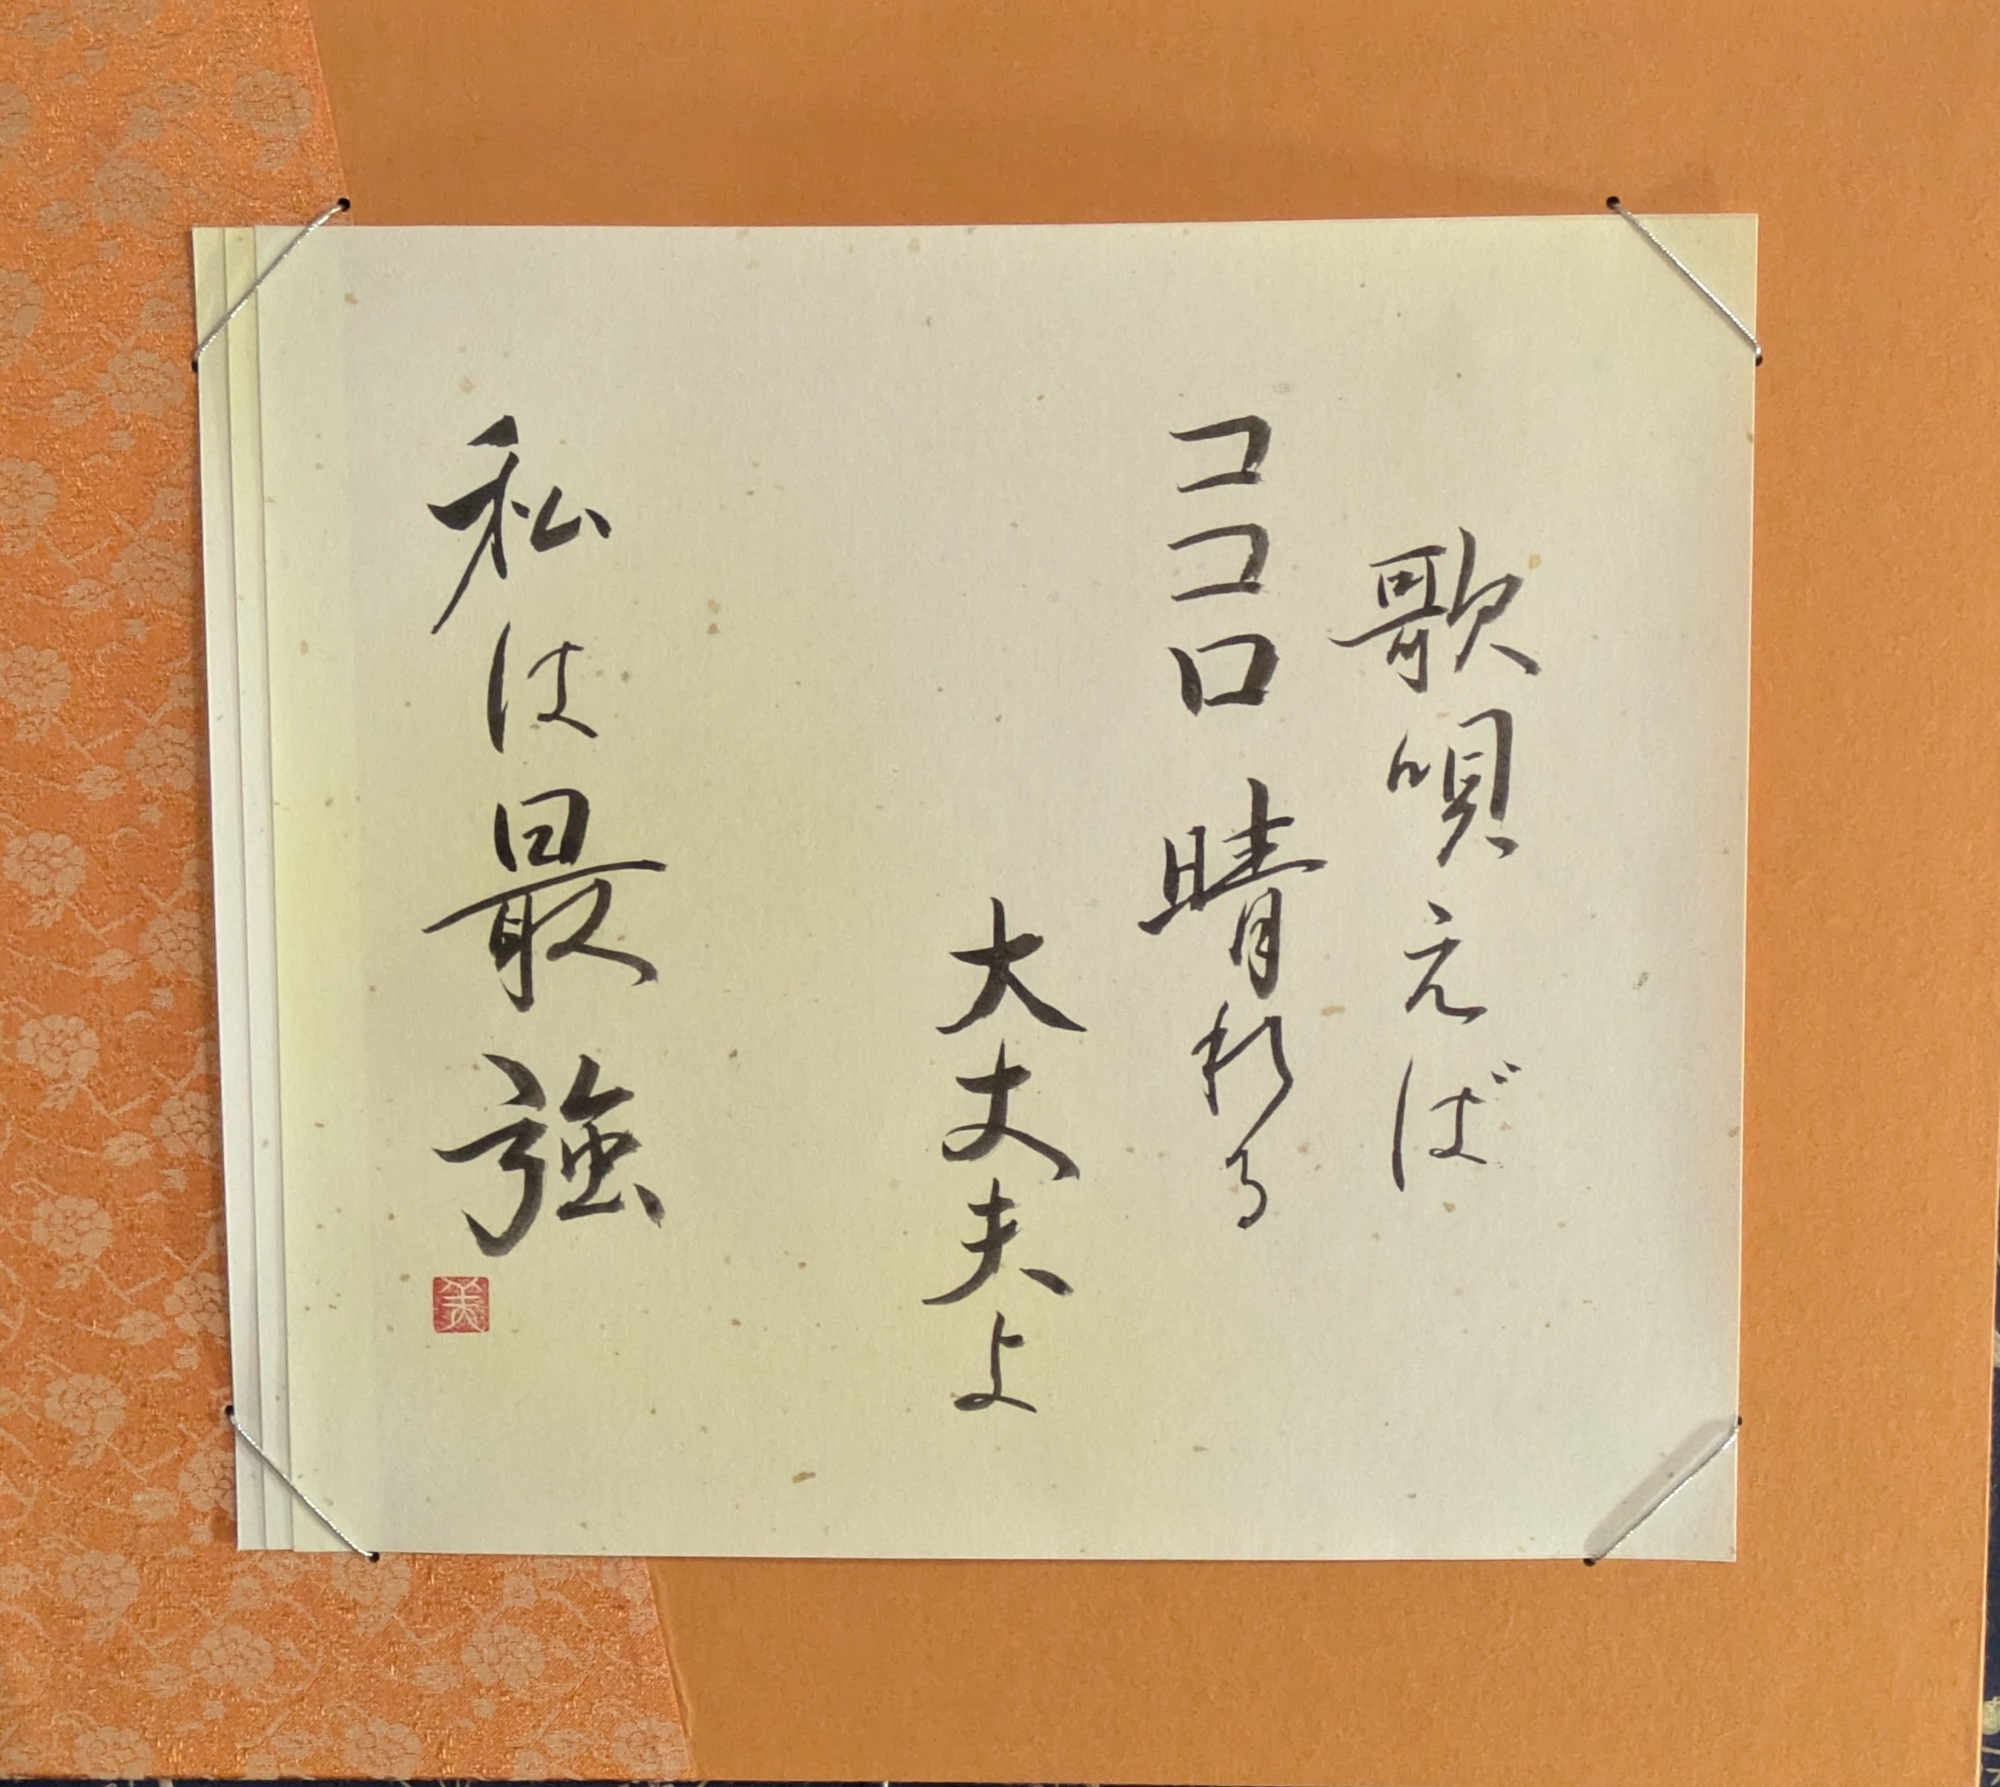 歌唄えば
ココロ晴れる
大丈夫よ
私は最強
美